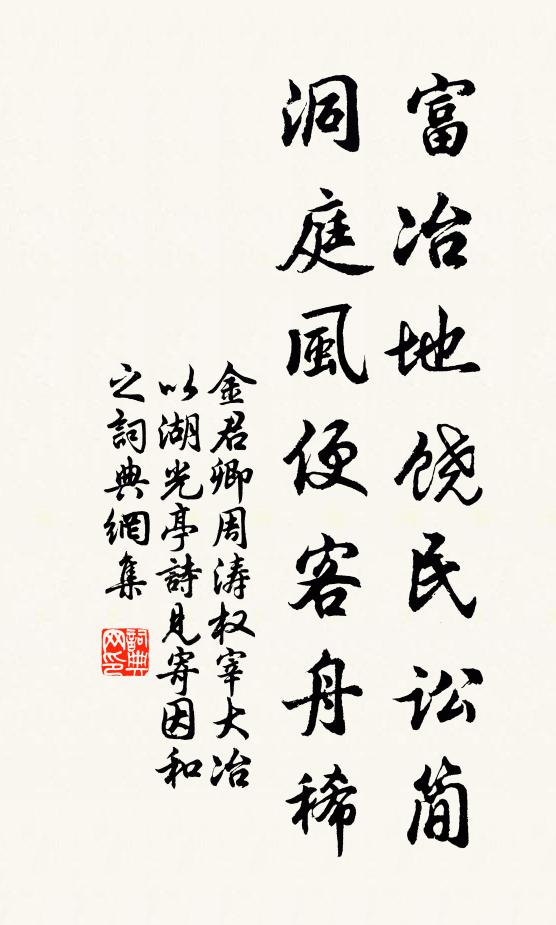 富冶地饶民讼简
洞庭風便客舟稀
金君卿周涛权宰大冶
以湖光亭詩見寄因和
之詞典網集
詞典网印